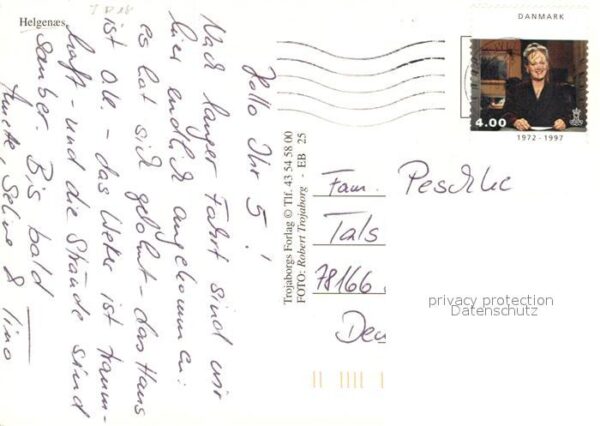 Helgenæs,
Hallo Ihr 5!
Nach langer Fahrt sind wir
hier endlich angekommen:
es hat sich gelohnt - das Haus
ist ok. - das Wetter ist traum-
haft - und die Strände sind
sauber. Bis bald
& Tino
Trojaborgs Forlag © Tlf. 43 54 58 00
FOTO: Robert Trojaborg - EB 25
DANMARK
4.00
1972 - 1997
Fam. Peschke
Tals
78166
Deu
privacy protection
Datenschutz